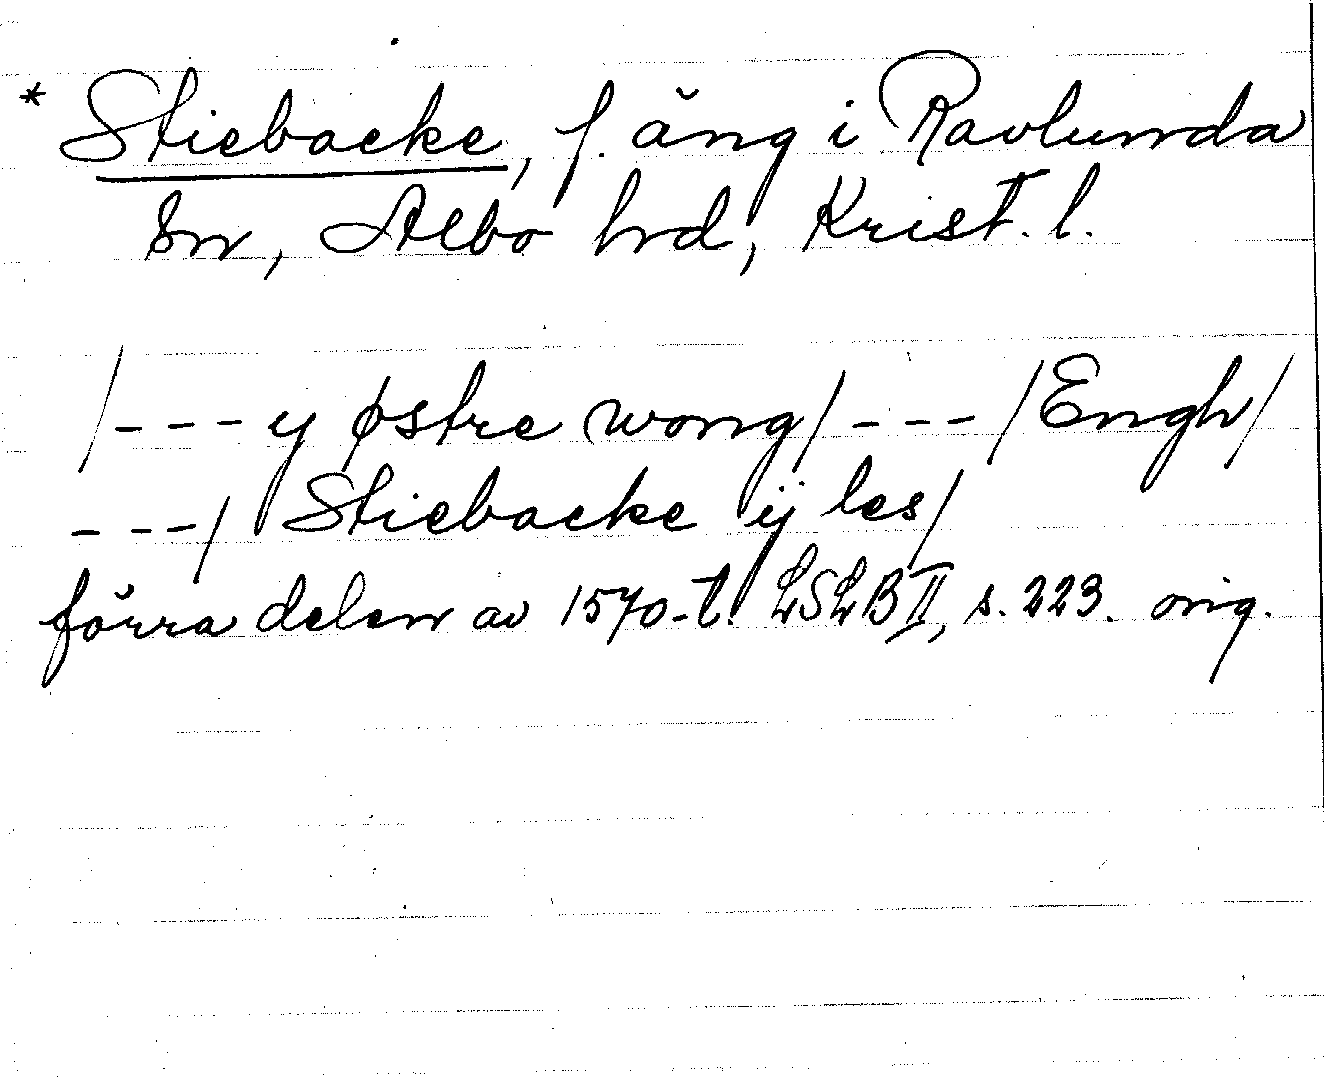 * Stiebacke, f. äng i Ravlunda
sn, Albo hrd, Krist. l.
/---y østre wong/---/Engh/
---/ Stiebacke ij les/
förra delen av 1570-t. LSLB II, s. 223. orig.